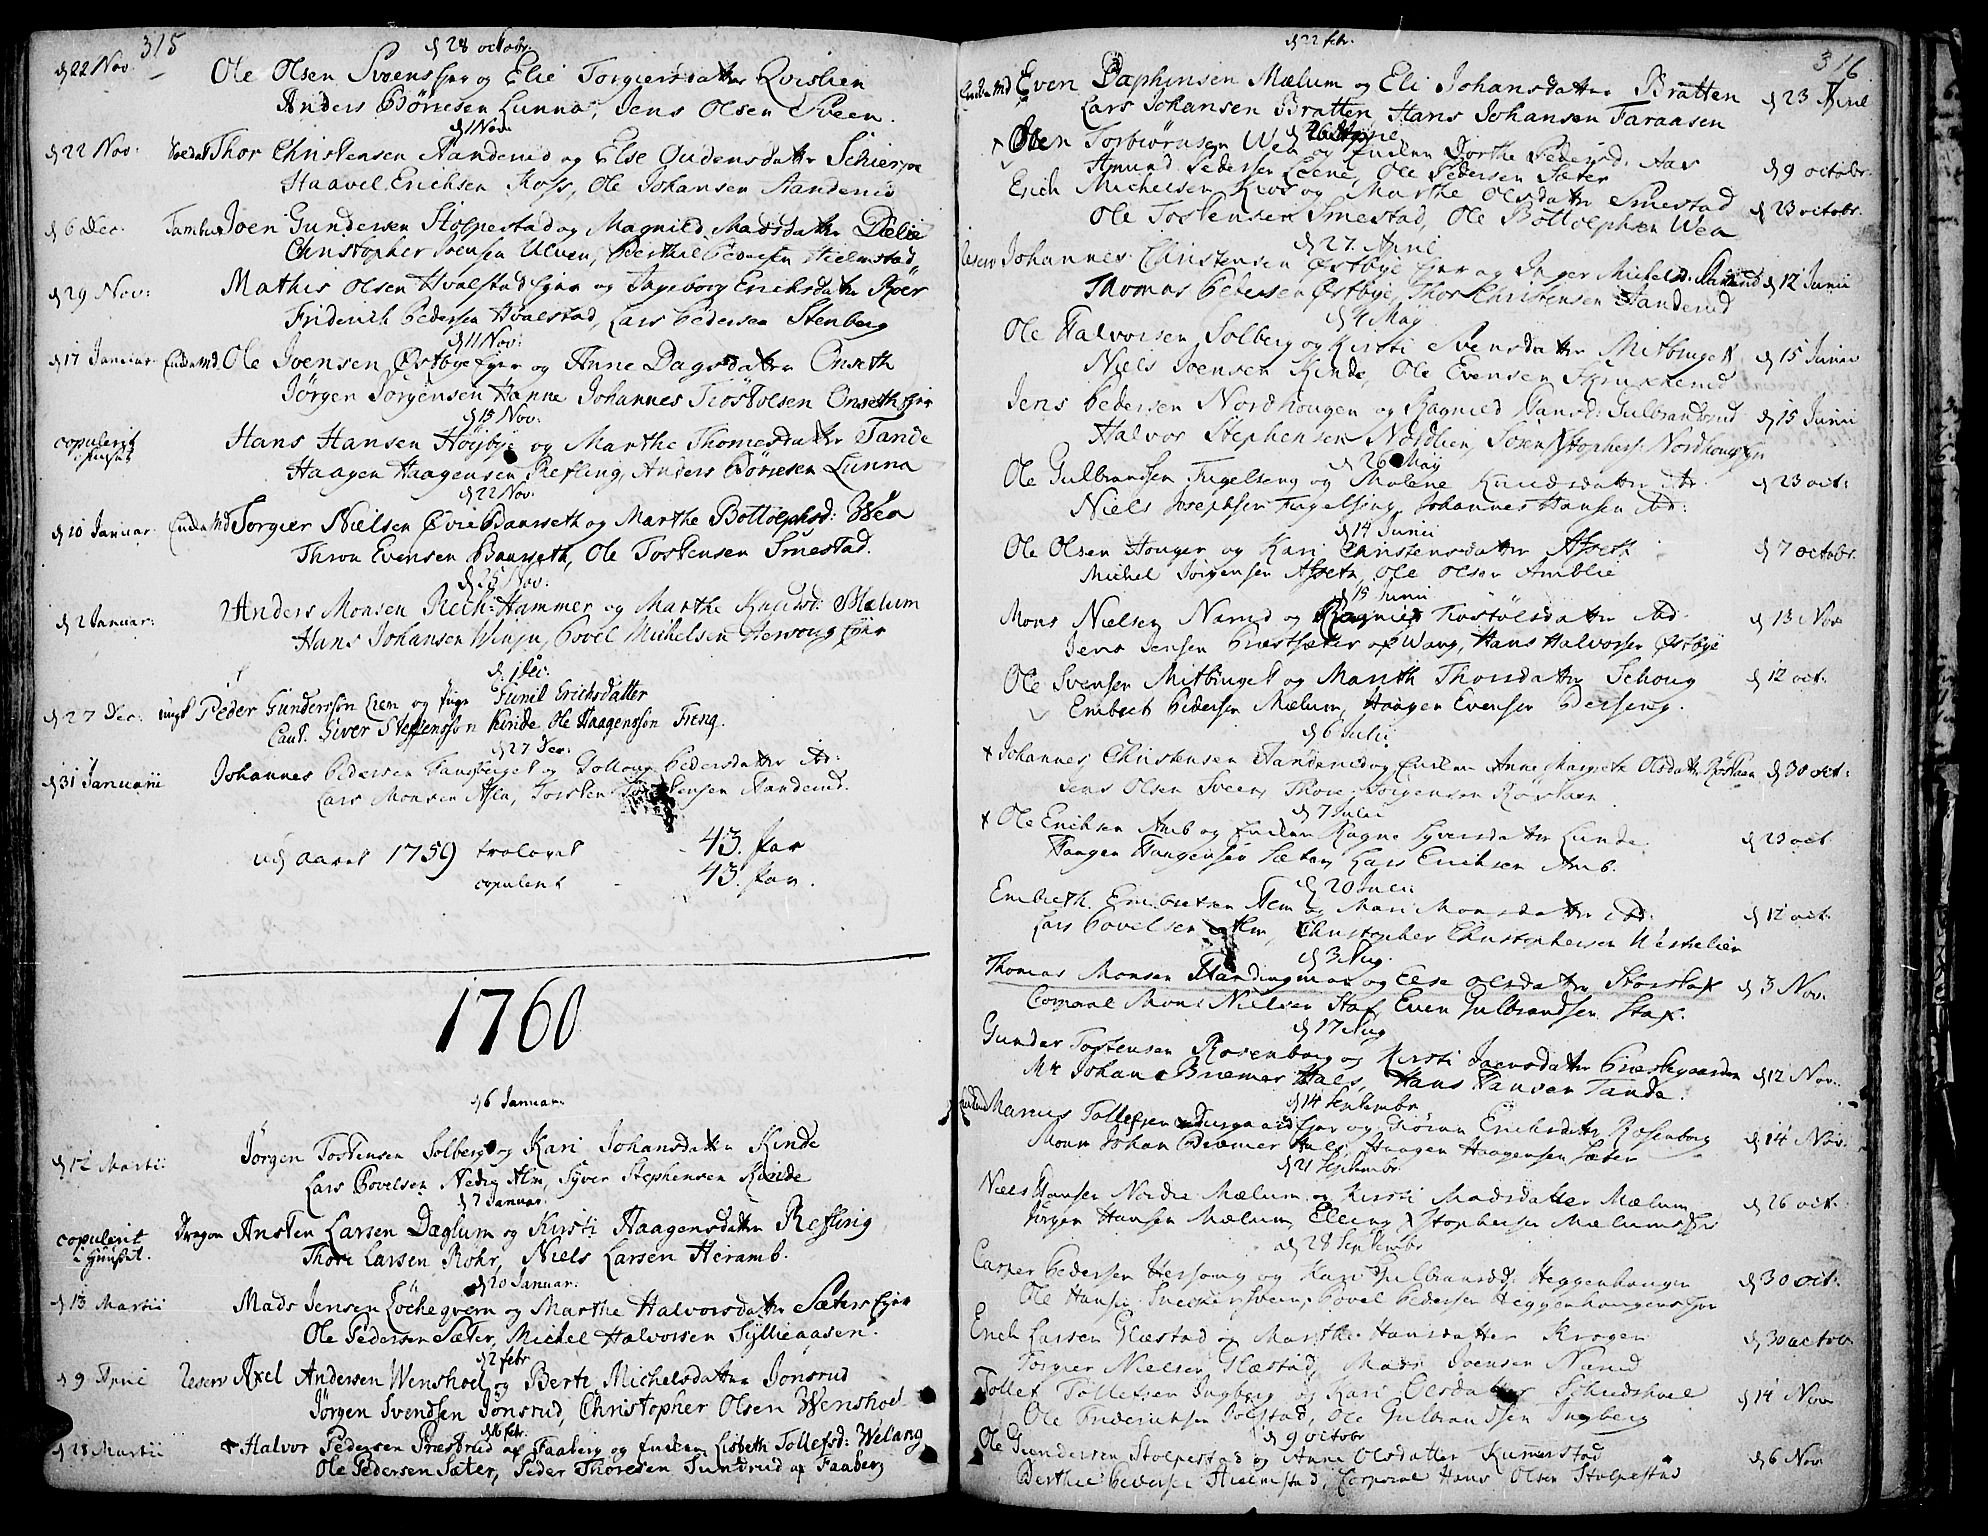 315
d 28 octobr.
d 22 Nov. Ole Olsen Svoens Ejer og Elie Torgiersdatter Qvislien
Anders Börresen Lunna, Jens Olsen Sveen.
d 1 Nov.
d 22 Nov: Soldat Thor Christensen Aanderud og Else Gudensdatter Schierpe
Haavel Erichsen Koss, Ole Johansen Aanderud
d 6 Dec. Tambur Joen Gundersen Stolpestad og Magnild Madsdatter Dælie
Christopher Joensen Ulven, Berthil Pedersen Hielmstad
d 29 Nov: Mathis Olsen Hvalstad Ejer og Ingeborg Erichsdatter Röer
Friderich Pedersen Hvalstad, Lars Pedersen Stenberg
d 11 Nov:
d 17 Januar. Enckemd. Ole Joensen Østbye Ejer og Anne Dagsdatter Onseth
Jörgen Jörgensen Hanne Johannes Tiostolsen Onseth Ejer
d 15 Nov:
copulerit i huset Hans Hansen Höybye og Marthe Thomesdatter Tande
Haagen Haagensen Refling, Anders Börresen Lunna
d 22 Nov:
d 10 Januar. Enckemd Torgier Nielsen Øvre Bansseth og Marthe Bottolphsd: Wea
Thron Evensen Bansseth, Ole Tostensen Smestad.
d 25 Nov:
d 2 Januar: Anders Monsen Hammer og Marthe Knudsd: Mælum
Hans Johansen Winju, Povel Michelsen Hersoug Ejer
d. 1 Dec:
d 27 Dec. ungk Peder Gundersön Liem og Pige Gunil Erichsdatter
Caut. Siver Steffensson Kinde, Ole Haagensson Freng.
d 27 Dec:
d 31 Januarii Johannes Pedersen Fangberget og Gollaug Pedersdatter ibd:
Lars Monsen Alm, Torsten Christensen Aanderud.
udj aaret 1759 trolovet - 43. par
copulerit - 43. par.
1760
d 6 Januar.
d 12 Martii: Jörgen Tostensen Solberg og Kari Johansdatter Kinde
Lars Povelsen Nedre Alm, Syver Stephensen Kinde
d 7 Januar.
copulerit i huuset. Dragon Ansten Larsen Dæglum og Kirsti Haagensdatter Refling
Thore Larsen Rohr, Niels Larsen Heramb.
d 20 Januar:
d 13 Martii Mads Jensen Löchegvern og Marthe Halvorsdatter Sæters Ejer
Ole Pedersen Sæter, Michel Halvorsen Sylliaasen.
d 2 febr
d 9 April Reserv Axel Andersen Wenshoel og Berte Michelsdatter Jonsrud
Jörgen Svendsen Jönsrud, Christopher Olsen Wenshoel
d 16 febr.
d 28 Martii + Halvor Pedersen Præstrud af Faaberg og Encken Lisbeth Tollefsd: Welang
Ole Pedersen Sæter, Peder Thoresen Sundrud af Faaberg
316
d 22 febr.
Enckemd Even Daphinsen Mælum og Eli Johansdatter Bratten d 23 April
Lars Johansen Bratten, Hans Johansen Faraasen
Oben Torbiörnsen Wea og Encken Dorthe Pedersd: Aas d 9 octobr.
Amund Pedersen Leene, Ole Pedersen Sæter
Erich Michelsen Kios og Marthe Olsdatter Smestad d 23 octobr.
Ole Tostensen Smestad, Ole Bottolphsen Wea
d 27. April
Reserv Johannes Christensen Østbye Ejer og Inger Michelsd: Aanerud d 12 Junii
Thomas Pedersen Østbye, Thor Christensen Aanderud
d 4 May
Ole Halvorsen Solberg og Kirsti Svensdatter Mitbinget d 15 Junii
Niels Joensen Kinde, Ole Evensen Skrukkerud
Jens Pedersen Nordhougen og Ragnild Hansd: Gulbrandsrud d 15 Junii
Halvor Stephensen Nordlien, Sören Nordhoug Ejer
d 26 May
Ole Gulbrandsen Fugelseng og Malene Knudsdatter ibd. d 23 oct:
Niels Josephsen Fugelseng, Johannes Hansen ibd:
d 14 Junii
Ole Olsen Houger og Kari Christensdatter Asseth d 7 octobr.
Michel Jörgensen Asseth, Ole Olsen Amblie
d 15 Junii
Mons Nielsen Narud og Ragnild Tiostolsdatter ibd. d 13 Nov
Jens Jensen Præstsæter af Wang, Hans Halvorsen Østbye
Ole Svensen Mitbinget og Marith Thorsdatter Schoug d 12 oct.
Embret Pedersen Mælum, Haagen Evensen Berseng.
d 6 Julii
+ Johannes Christensen Aanderud og Encken Anne Margrete Olsdatter Röstaen d 30 oct:
Jens Olsen Sveen, Thore Jörgensen Röstaen
d 7 Julii
+ Ole Erichsen Amb og Encken Ragne Syversdatter Lunde. d 23 oct
Haagen Haagensen Sæter, Lars Erichsen Amb.
d 20 Julii
Embreth Embretsen Alm og Mari Monsdatter ibd: d 12 oct.
Lars Povelsen Alm, Christopher Christophersen Westelien
d 3 Aug.
Thomas Monsen Flandingmoe og Else Olsdatter Storstaf d 3 Nov.
Corporal Mons Nielsen Staf, Even Gulbrandsen Staf.
d 17 Aug
Gunder Tostensen Rosenborg og Kirsti Joensdatter Præstegaarden d 12 Nov.
Mr Johan Bræmer Hals, Hans Hansen Tande.
d 14 Septembr
Marius Tollefsen Ejer og Eriksdatter Rosenborg d 14 Nov:
Monr Johan Bræmer Hals, Haagen Haagensen Sæter
d 21 Septembr.
Niels Hansen Nordre Mælum og Kirsti Madsdatter Mælum d 26 oct.
Jörgen Hansen Mælum, Elling Mælums Ejer
d 28 Septembr
Casper Pedersen Hersoug og Kari Gulbrandsd: Heggenhougen d 30 oct:
Ole Hansen Sveen, Povel Pedersen Heggenhougens Ejer
Erich Larsen Glæstad og Marthe Hansdatter Krogen d 30 octob
Torgier Nielsen Glæstad, Mads Joensen Narud
Tollef Tollefsen Ingberg og Kari Olsdatter Schudshoel d 14 Nov
Ole Frideriksen Jolstad, Ole Gulbrandsen Ingberg
d 9 octobr
Ole Gundersen Stolpestad og Anne Olsdatter Kummerstad d 6 Nov
Berthel Pedersen Hielmstad, Corporal Hans Olsen Stolpestad